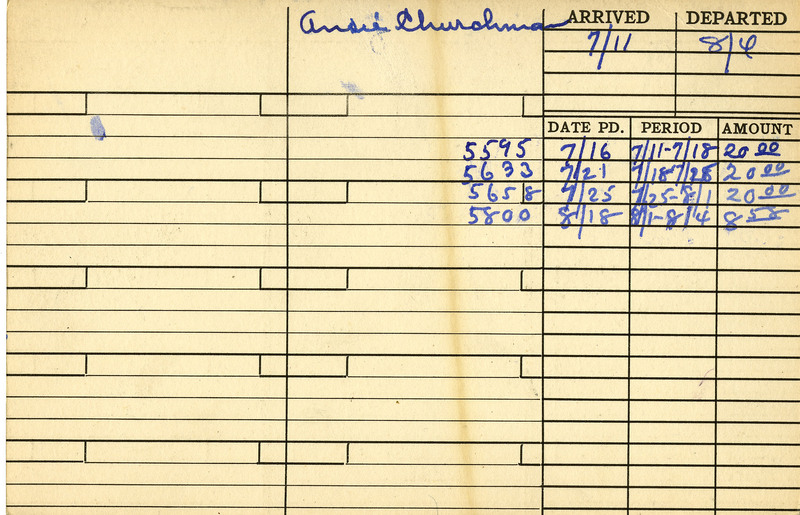 Ansie Churchman ARRIVED DEPARTED
7/11 8/4
DATE PD. PERIOD AMOUNT
5595 7/16 7/11-7/18 20 00
5633 7/21 7/18-7/25 20 00
5658 7/25 7/25-8/1 20 00
5800 8/18 8/1-8/4 8 58